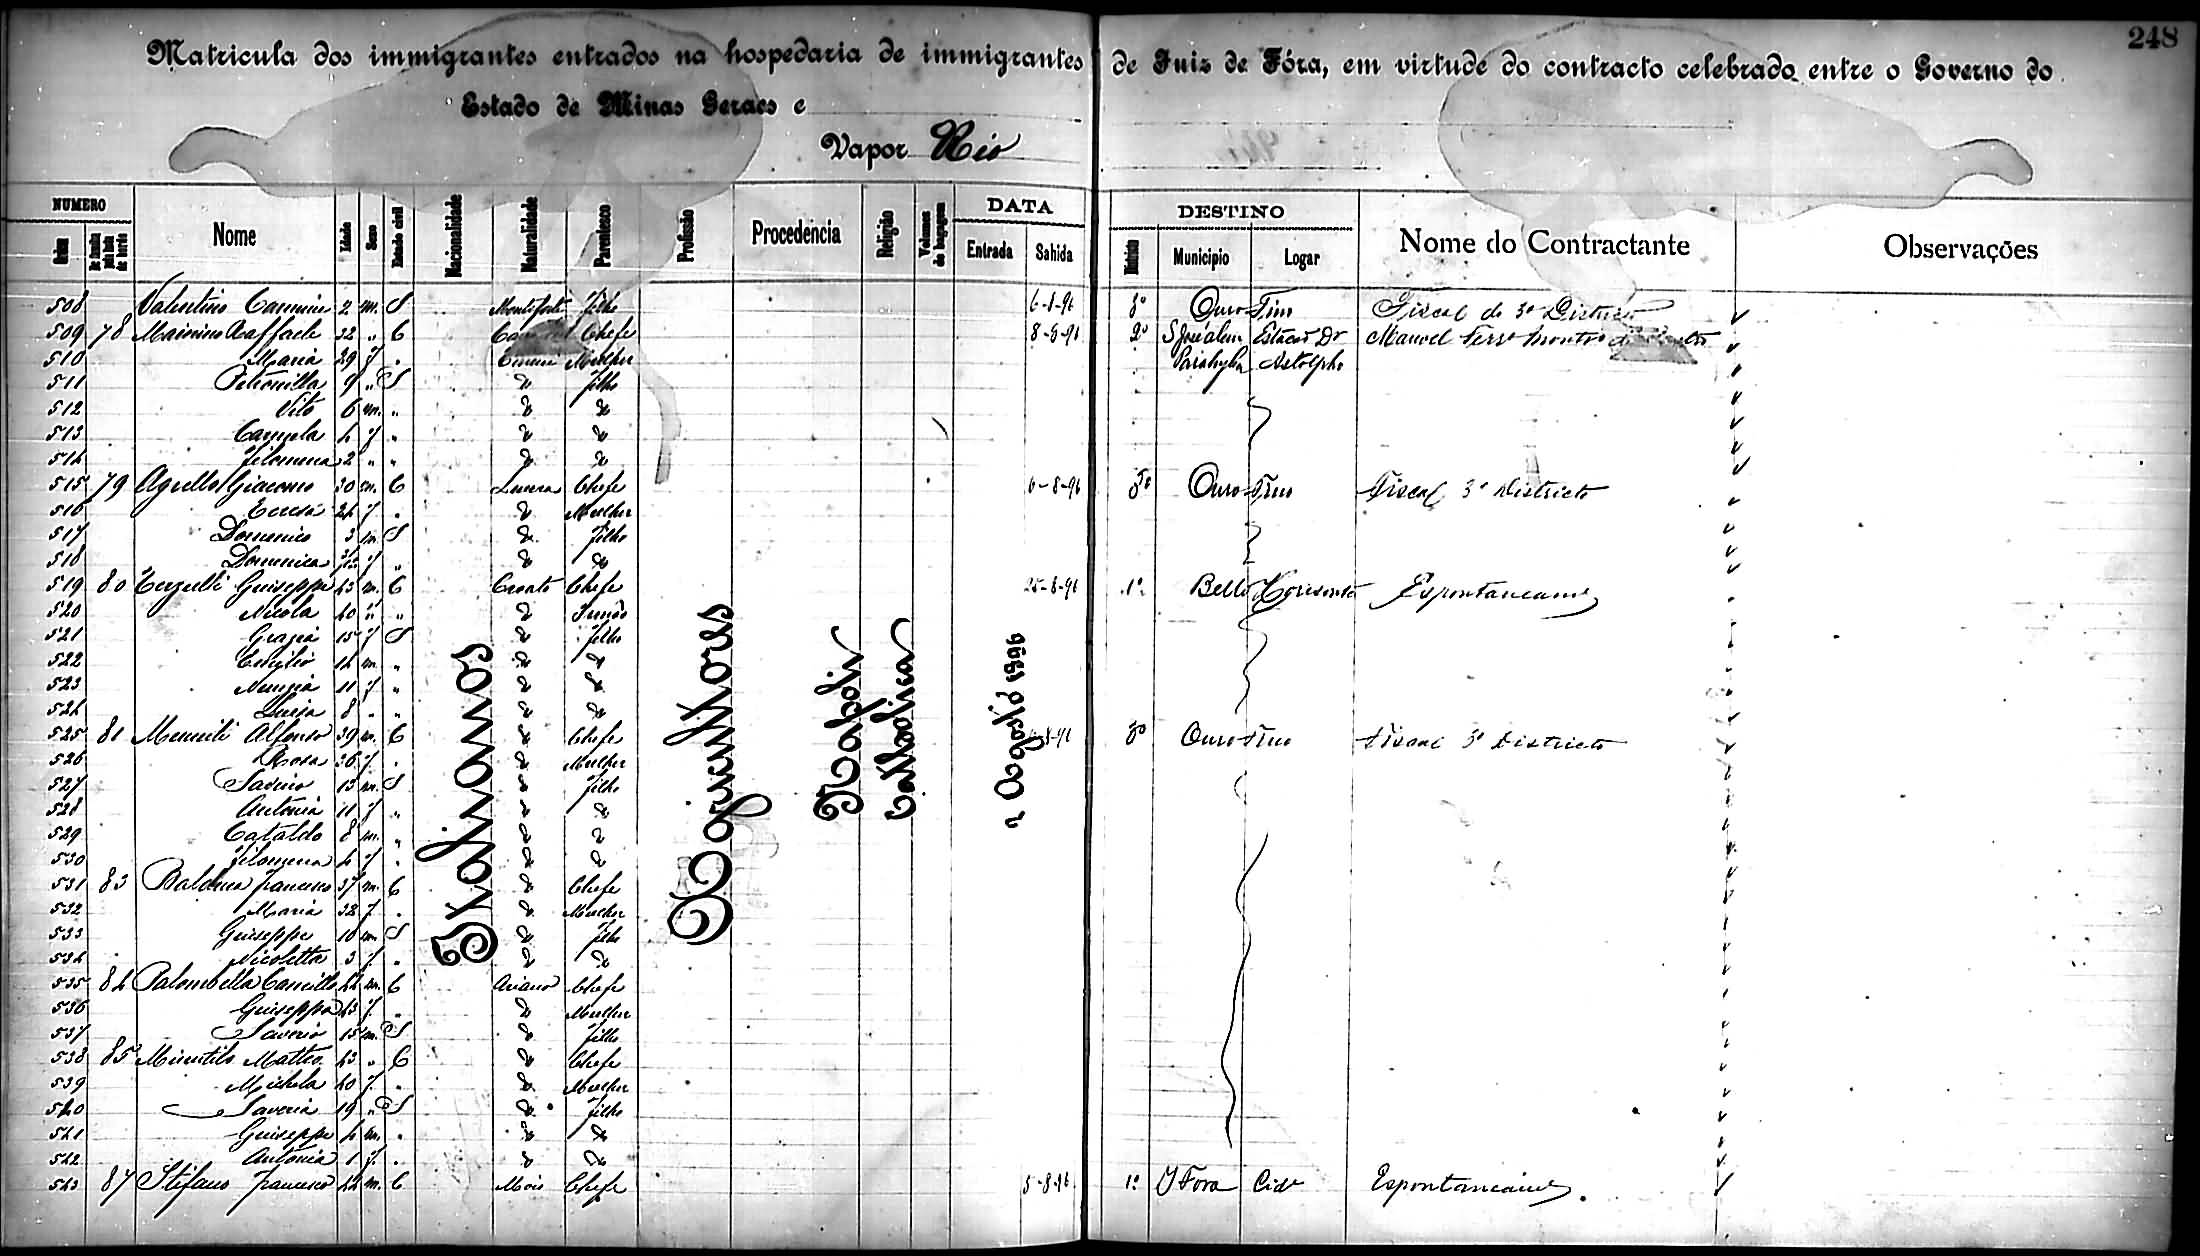 248
Matricula dos immigrantes entrados na hospedaria de immigrantes de Juiz de Fóra, em virtude do contracto celebrado entre o Governo do
Estado de Minas Geraes e
Vapor Rio
NUMERO Nome Idade Sexo Estado civil Nacionalidade Naturalidade Parentesco Profissão Procedencia Religião Volumes de bagagem DATA DESTINO Nome do Contractante Observações
Ordem Entrada Sahida Districto Municipio Logar
508 Valentino Carmine 2 m. S Filho 6-8-96 3º Ouro Fino Fiscal do 3º Districto
509 78 Raffaele 32 " C Chefe 8-8-96 2º S José alem Estação Dr Manoel
510 Maria 29 f " Mulher Parahyba Astolpho
511 Petronilla 9 " S Filho
512 Vito 6 m. "
513 Carmela 4 f "
514 Filomena 2 " "
515 79 Agnello Giacomo 30 m. C Lucera Chefe 6-8-96 3º Ouro Fino Fiscal 3º Districto
516 Teresa 24 f " Mulher
517 Domenico 3 m. S Filho
518 Domenica f "
519 80 Giuseppe 43 m. C Corato Chefe 25-8-96 1º Bello Horisonte Espontaneam.e
520 Nicola 40 " " Irmão
521 Grazia 15 f S Filho
522 Emilio 14 m. "
523 Nunzia 11 f "
524 Luisa 8 " "
525 81 Alfonso 39 m. C Chefe 8-96 3º Ouro Fino Fiscal 3º Districto
526 Rosa 36 f " Mulher
527 Saverio 13 m. S Filho
528 Antonia 11 f "
529 Cataldo 8 m. "
530 Filomena 4 f "
531 83 Francesco 37 m. C Chefe
532 Maria 32 f " Mulher
533 Giuseppe 10 m. S Filho
534 Nicoletta 3 f "
535 84 Palombella 44 m. C Ariano Chefe
536 Giuseppa 43 f " Mulher
537 Saverio 15 m. S Filho
538 85 Matteo 43 " C Chefe
539 Michela 40 f " Mulher
540 Saveria 19 " S Filho
541 Giuseppe 4 m. "
542 Antonia 1 f. "
543 87 Stefano Francesco 44 m. C Chefe 5-8-96 1º J Fora Cid.e Espontaneam.e
Italianos
Agricultores
Napoli
Catholica
2 Agosto 1896